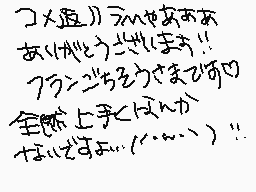 コメ返)) うひゃあああ
ありがとうございます!!
フランごちそうさまです♡
全然上手くなんか
ないですよ…(´･ω･`)!!